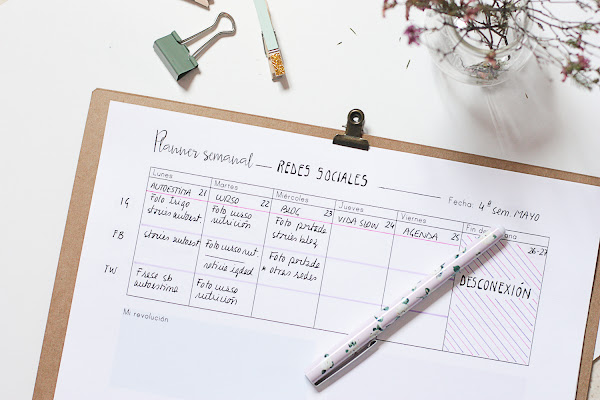 Planner semanal — REDES SOCIALES
Fecha: 4ª sem. MAYO
Lunes Martes Miércoles Jueves Viernes Fin de
AUTOESTIMA 21 CURSO 22 BLOG 23 VIDA SLOW 24 AGENDA 25 26-27
IG
Foto
stories autoest
Foto curso
nutrición
Foto portada
stories blog
DESCONEXIÓN
FB
stories autoest
Foto curso nut.
Foto portada
* otras redes
TW
Frase sb
autoestima
Foto curso
nutrición
Mi revolución